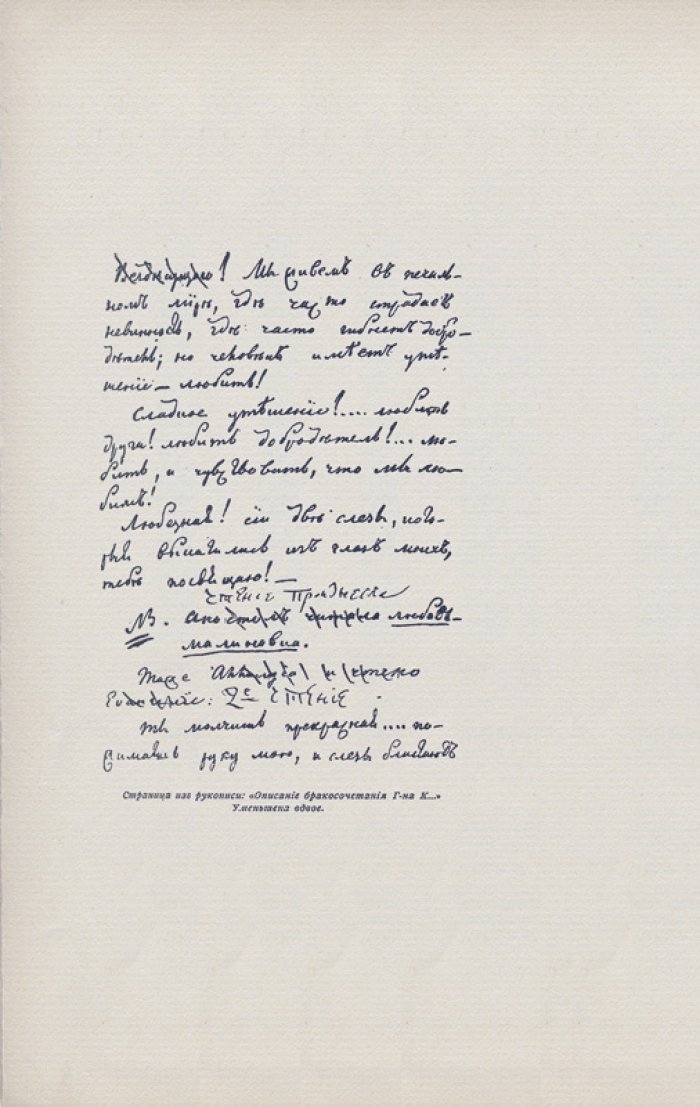 ! Мы живемъ въ печаль-
номъ мірѣ, гдѣ часто страдаетъ
невинность, гдѣ часто гибнетъ добро-
дѣтель; но человѣкъ имѣетъ утѣ-
шеніе — любить!
Сладкое утѣшеніе!.... любить
друга! любить добродѣтель!... лю-
бить, и чувствовать, что мы лю-
бимъ!
Любезная! сіи двѣ слезы, кото-
рыя выкатились изъ глазъ моихъ,
тебѣ посвящаю! —
чтеніе
NB. любовь-
малиновка.
Тоже
2е чтеніе
Ты молчишь прекрасная.... по-
жимаешь руку мою, и слезы блистаютъ
Страница изъ рукописи: «Описаніе бракосочетанія Г-на К...»
Уменьшена вдвое.